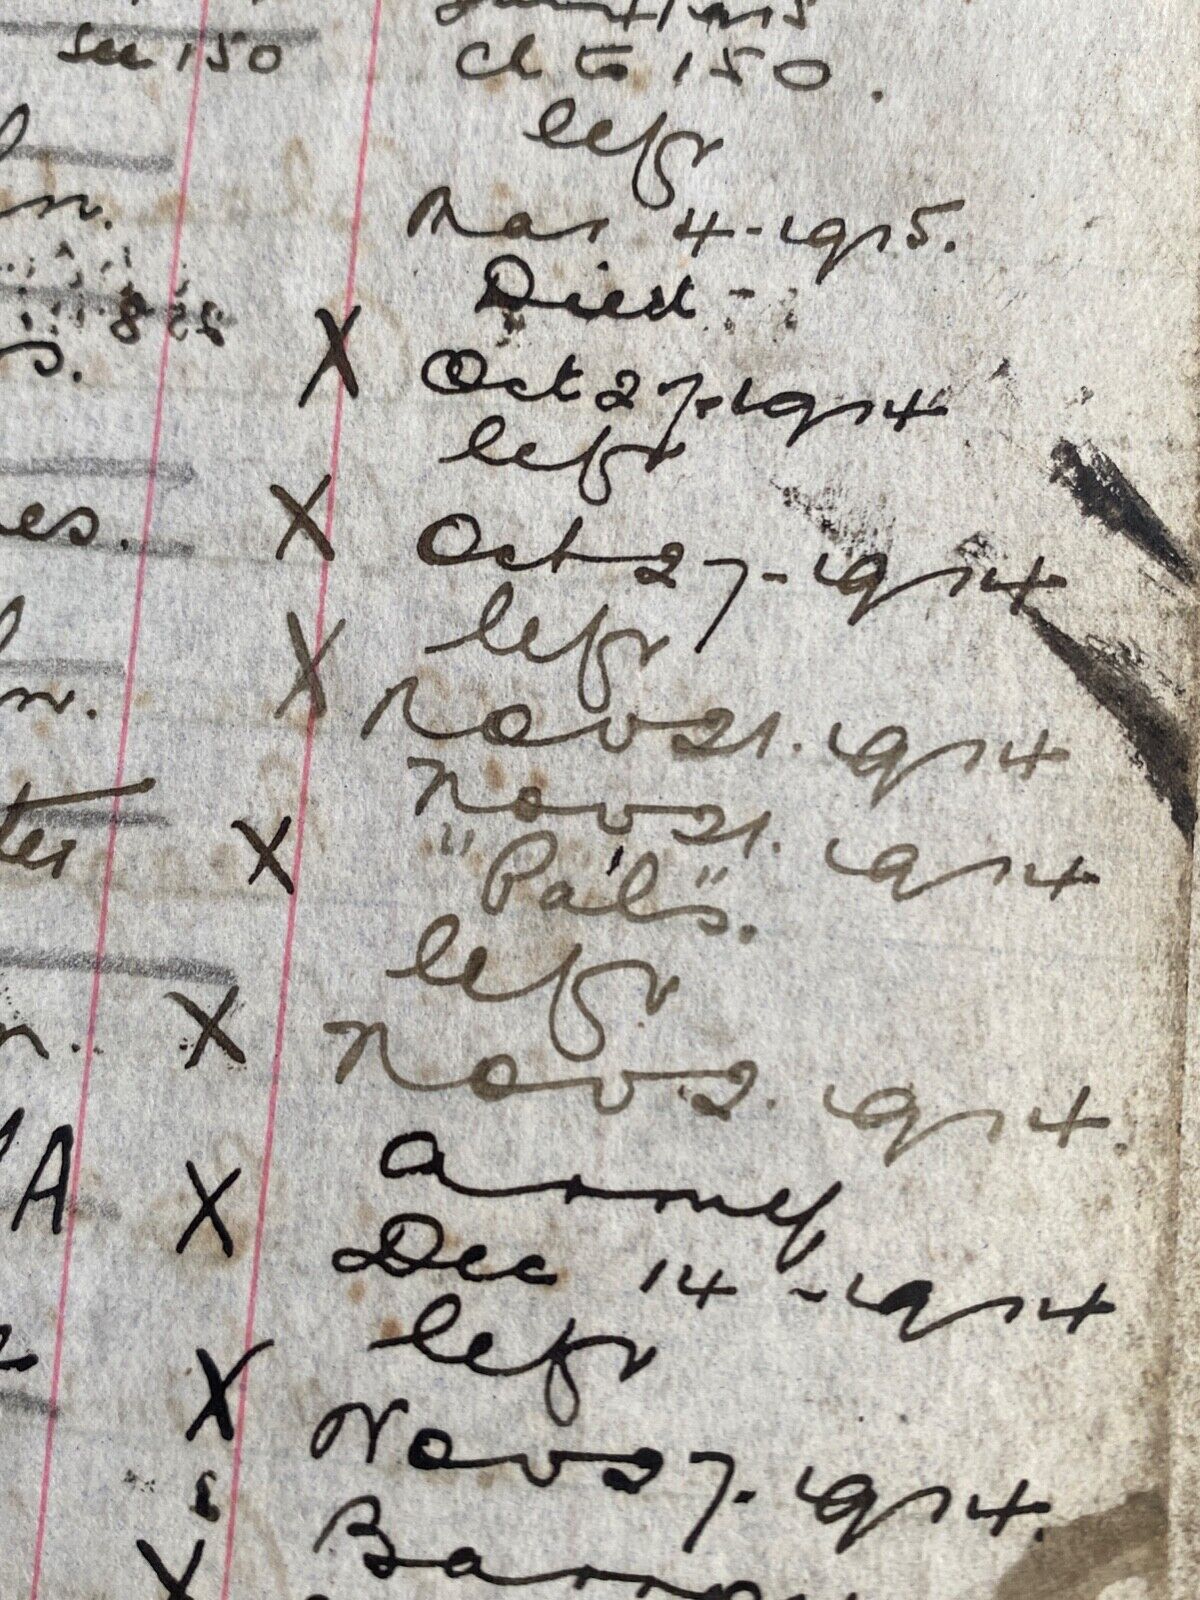 see 150 ch to 150.
left
Mar 4-1915.
Died -
X Oct 27.1914
left
es. X Oct 27-1914
left
X Nov 21.1914
Nov 21.1914
ter X "Pals".
left
n. X Nov 2.1914.
A X Army
Dec 14-1914
left
X Nov 27.1914.
X